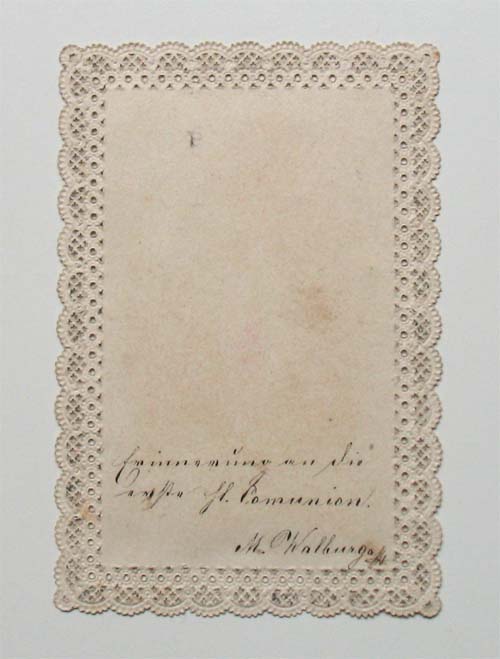 Erinnerung an die
erste hl. Comunion.
M. Walburga